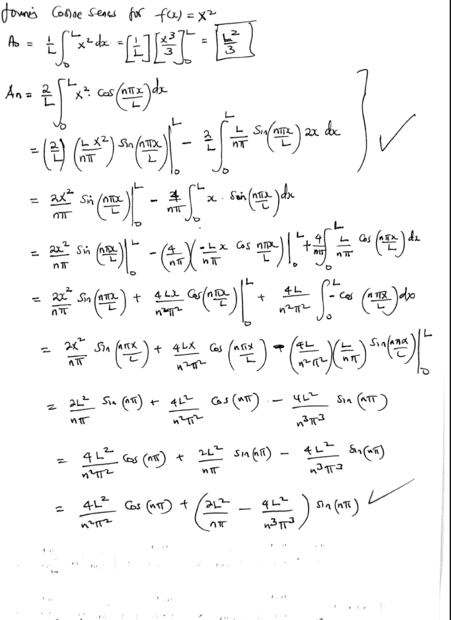 Fourier Cosine Series for f(x) = x²
A₀ = 1/L ∫₀ᴸ x² dx = [1/L] [x³/3]₀ᴸ = L²/3
An = 2/L ∫₀ᴸ x² · cos(nπx/L) dx
= (2/L) (L x²/nπ) sin(nπx/L) |₀ᴸ − 2/L ∫₀ᴸ L/nπ sin(nπx/L) 2x dx ✓
= 2x²/nπ sin(nπx/L) |₀ᴸ − 4/nπ ∫₀ᴸ x · sin(nπx/L) dx
= 2x²/nπ sin(nπx/L) |₀ᴸ − (4/nπ)(−L/nπ x cos nπx/L) |₀ᴸ + 4/nπ ∫₀ᴸ L/nπ cos(nπx/L) dx
= 2x²/nπ sin(nπx/L) + 4Lx/n²π² cos(nπx/L) |₀ᴸ + 4L/n²π² ∫₀ᴸ − cos(nπx/L) dx
= 2x²/nπ sin(nπx/L) + 4Lx/n²π² cos(nπx/L) − (4L/n²π²)(L/nπ) sin(nπx/L) |₀ᴸ
= 2L²/nπ sin(nπ) + 4L²/n²π² cos(nπ) − 4L²/n³π³ sin(nπ)
= 4L²/n²π² cos(nπ) + 2L²/nπ sin(nπ) − 4L²/n³π³ sin(nπ)
= 4L²/n²π² cos(nπ) + (2L²/nπ − 4L²/n³π³) sin(nπ) ✓